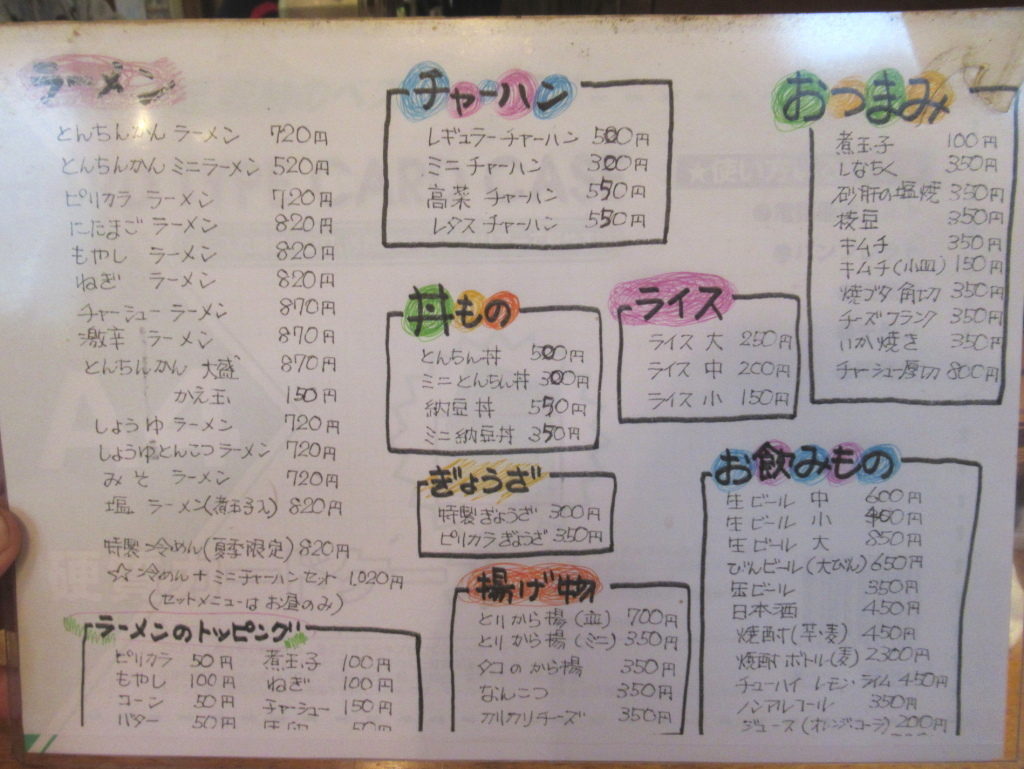 ラーメン
とんちんかん ラーメン 720円
とんちんかん ミニラーメン 520円
ピリカラ ラーメン 720円
にたまご ラーメン 820円
もやし ラーメン 820円
ねぎ ラーメン 820円
チャーシュー ラーメン 870円
激辛 ラーメン 870円
とんちんかん 大盛 870円
かえ玉 150円
しょうゆ ラーメン 720円
しょうゆとんこつ ラーメン 720円
みそ ラーメン 720円
塩 ラーメン(煮玉子入) 820円
特製 冷めん(夏季限定) 820円
☆ 冷めん + ミニチャーハン セット 1,020円
(セットメニューは お昼のみ)
ラーメンのトッピング
ピリカラ 50円 煮玉子 100円
もやし 100円 ねぎ 100円
コーン 50円 チャーシュー 150円
バター 50円 50円
チャーハン
レギュラー チャーハン 500円
ミニ チャーハン 300円
高菜 チャーハン 550円
レタス チャーハン 550円
丼もの
とんちん丼 500円
ミニとんちん丼 300円
納豆丼 550円
ミニ納豆丼 350円
ぎょうざ
特製ぎょうざ 300円
ピリカラぎょうざ 350円
揚げ物
とりから揚(皿) 700円
とりから揚(ミニ) 350円
タコのから揚 350円
なんこつ 350円
カリカリチーズ 350円
ライス
ライス 大 250円
ライス 中 200円
ライス 小 150円
おつまみ
煮玉子 100円
しなちく 350円
砂肝の塩焼 350円
枝豆 350円
キムチ 350円
キムチ(小皿) 150円
焼ブタ角切 350円
チーズフランク 350円
いか焼き 350円
チャーシュー厚切 800円
お飲みもの
生ビール 中 600円
生ビール 小 400円
生ビール 大 850円
びんビール(大びん) 650円
缶ビール 350円
日本酒 450円
焼酎(芋・麦) 450円
焼酎ボトル(麦) 2300円
チューハイ レモン・ライム 450円
ノンアルコール 350円
ジュース(オレンジ・コーラ) 200円